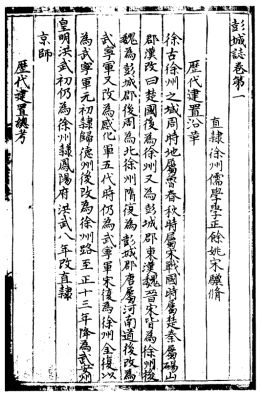 彭城誌卷第一
直隸徐州儒學學正餘姚宋驥脩
歷代建置沿革
徐古徐州之域周時地屬魯春秋時屬宋戰國時屬楚秦屬碭山
郡漢改曰楚國後為徐州又為彭城郡東漢魏晉宋皆為徐州後
魏為彭城郡後周為北徐州隋復為彭城郡唐屬河南道後改為
武寧軍又改為感化軍五代時仍為武寧軍宋後為徐州金復以
為武寧軍元初隸歸德州後改為徐州路至正十三年降為武安州
皇明洪武初仍為徐州隸鳳陽府洪武八年改直隸
京師
歷代建置總考